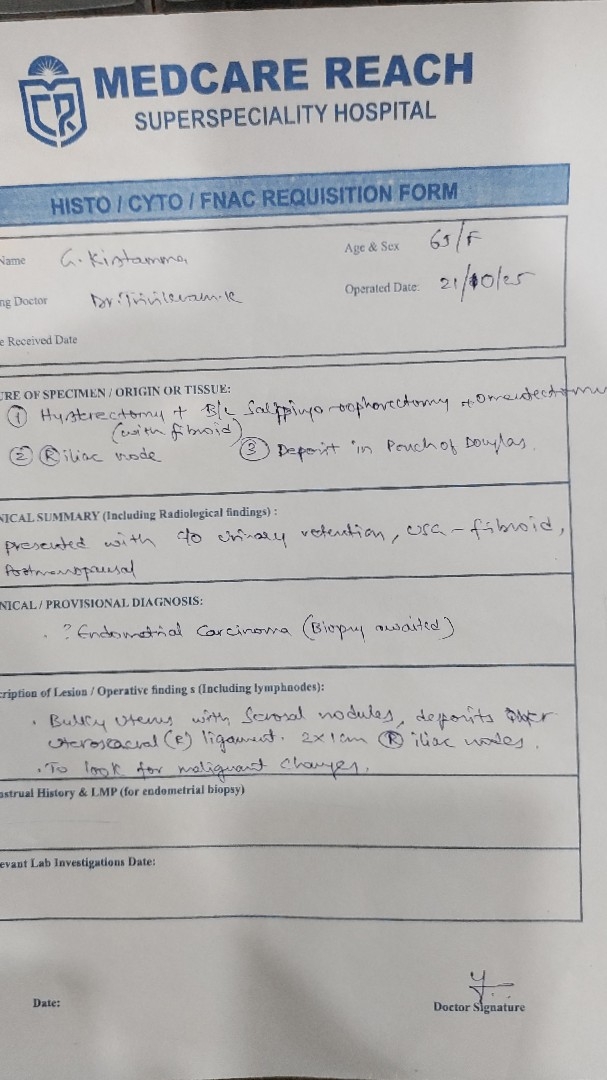 MEDCARE REACH
SUPERSPECIALITY HOSPITAL
HISTO / CYTO / FNAC REQUISITION FORM
Name G. Kistamma Age & Sex 65/F
ng Doctor Dr. K Operated Date: 21/10/25
e Received Date
URE OF SPECIMEN / ORIGIN OR TISSUE:
① Hysterectomy + B/L Salpingo-oophorectomy + omentectomy
(with fibroid)
② Ⓡ iliac node ③ Deposit in Pouch of Douglas.
NICAL SUMMARY (Including Radiological findings) :
presented with c/o urinary retention, USG - fibroid,
Postmenopausal
NICAL / PROVISIONAL DIAGNOSIS:
. ? Endometrial Carcinoma (Biopsy awaited)
cription of Lesion / Operative finding s (Including lymphnodes):
. Bulky Uterus with Serosal nodules, deposits over
uterosacral (R) ligament. 2x1cm Ⓡ iliac nodes.
. To look for malignant changes.
nstrual History & LMP (for endometrial biopsy)
evant Lab Investigations Date:
Date:
Doctor Signature